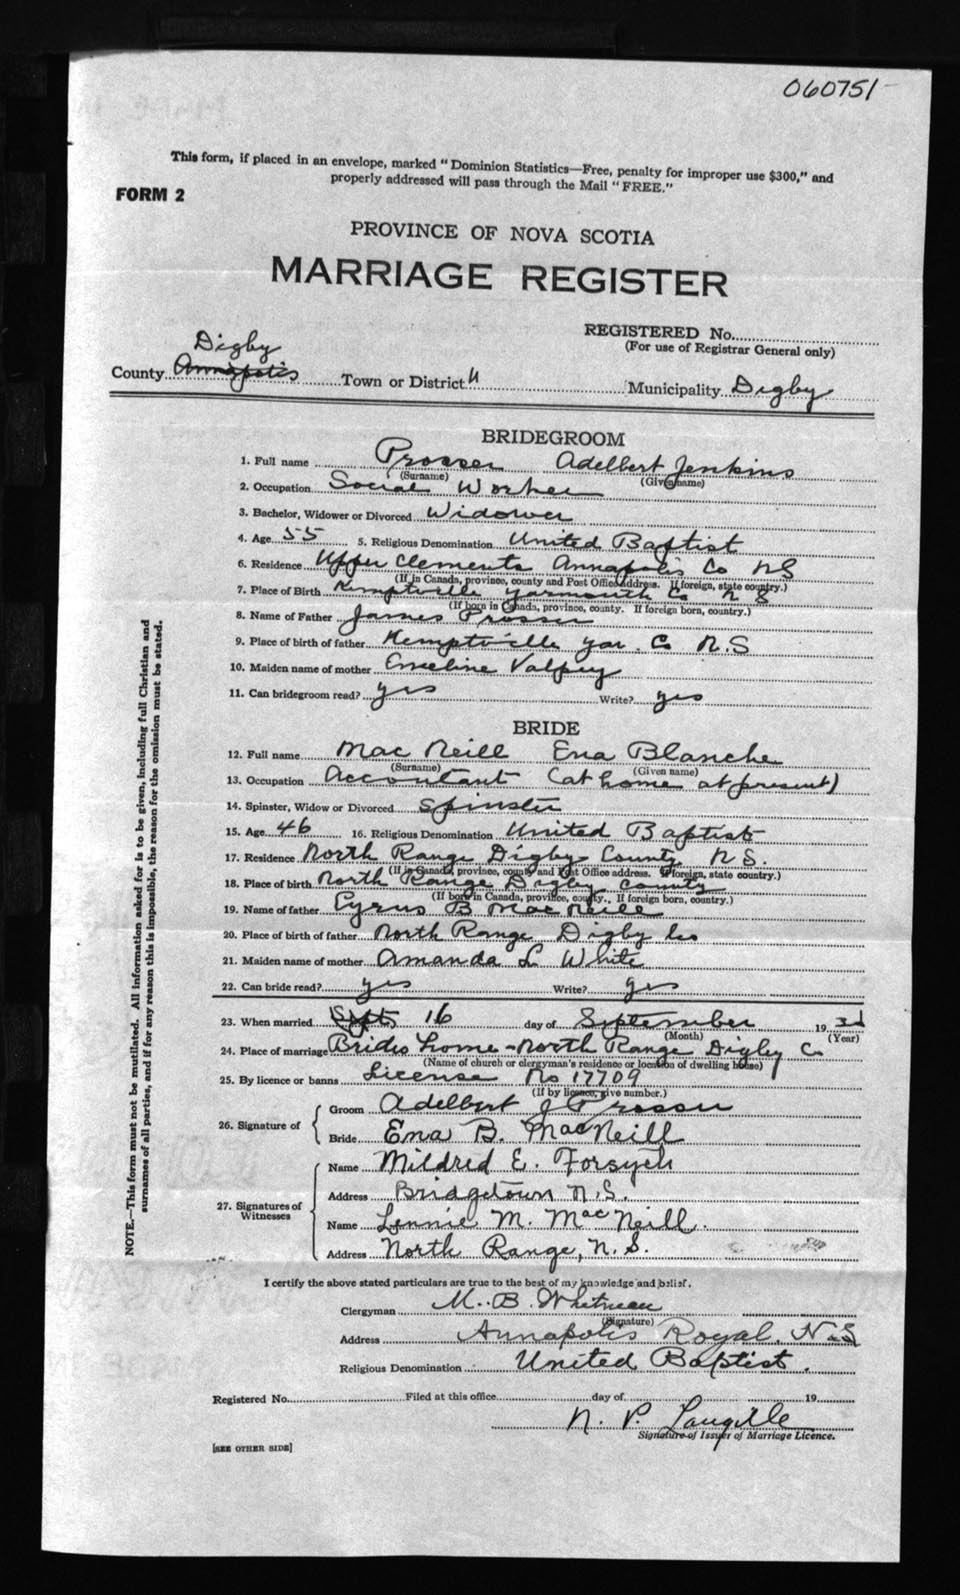 060751
This form, if placed in an envelope, marked "Dominion Statistics—Free, penalty for improper use $300," and
properly addressed will pass through the Mail "FREE."
FORM 2
PROVINCE OF NOVA SCOTIA
MARRIAGE REGISTER
REGISTERED No.
(For use of Registrar General only)
Digby
County Annapolis Town or District " Municipality Digby
BRIDEGROOM
1. Full name Prosser Adelbert Jenkins
(Surname) (Given name)
2. Occupation Social Worker
3. Bachelor, Widower or Divorced Widower
4. Age 55 5. Religious Denomination United Baptist
6. Residence Upper Clements Annapolis Co NS
(If in Canada, province, county and Post Office Address. If foreign, state country.)
7. Place of Birth Kemptville Yarmouth Co N S
(If born in Canada, province, county. If foreign born, country.)
8. Name of Father James Prosser
9. Place of birth of father Kemptville Yar. Co N.S
10. Maiden name of mother Emeline Valpey
11. Can bridegroom read? yes Write? yes
BRIDE
12. Full name MacNeill Ena Blanche
(Surname) (Given name)
13. Occupation Accountant (at home at present)
14. Spinster, Widow or Divorced Spinster
15. Age 46 16. Religious Denomination United Baptist
17. Residence North Range Digby County N S.
(If in Canada, province, county and Post Office address. If foreign, state country.)
18. Place of birth North Range Digby County
(If born in Canada, province, county., If foreign born, country.)
19. Name of father Cyrus B MacNeill
20. Place of birth of father North Range Digby Co
21. Maiden name of mother Amanda L White
22. Can bride read? yes Write? yes
23. When married Sept 16 day of September 19
(Month) (Year)
24. Place of marriage Brides home - North Range Digby Co
(Name of church or clergyman's residence or location of dwelling house)
25. By licence or banns License No 17709
(If by licence, give number.)
26. Signature of
Groom Adelbert J Prosser
Bride Ena B. MacNeill
27. Signatures of Witnesses
Name Mildred E. Forsyth
Address Bridgetown N.S.
Name Lennie M. MacNeill.
Address North Range, N.S.
I certify the above stated particulars are true to the best of my knowledge and belief.
Clergyman M. B. Whitman
(Signature)
Address Annapolis Royal. N.S
Religious Denomination United Baptist.
Registered No. Filed at this office day of 19
N. P. Langille
Signature of Issuer of Marriage Licence.
[SEE OTHER SIDE]
NOTE.—This form must not be mutilated. All information asked for is to be given, including full Christian and
surnames of all parties, and if for any reason this is impossible, the reason for the omission must be stated.